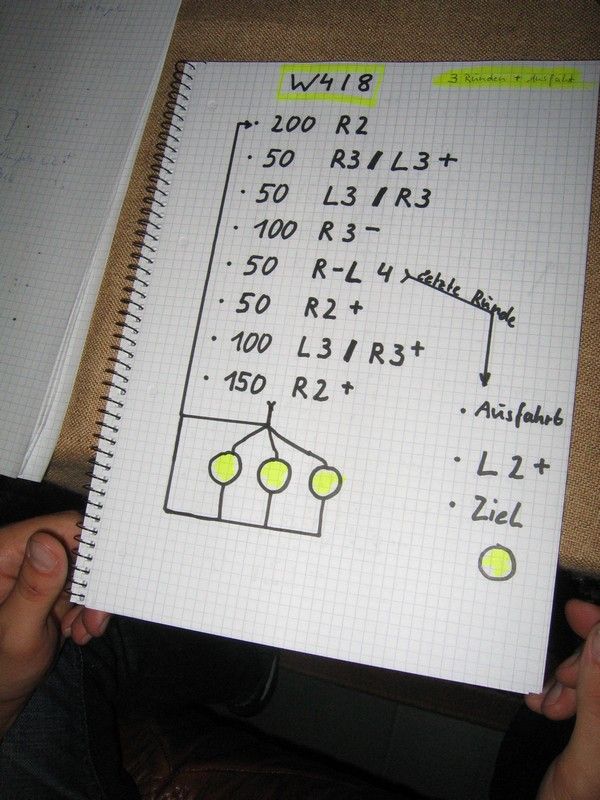 W4/8
3 Runden + Ausfahrt
200 R2
50 R3 / L3 +
50 L3 / R3
100 R3 -
50 R-L 4
letzte Runde
50 R2 +
100 L3 / R3 +
150 R2 +
Ausfahrt
L2 +
Ziel